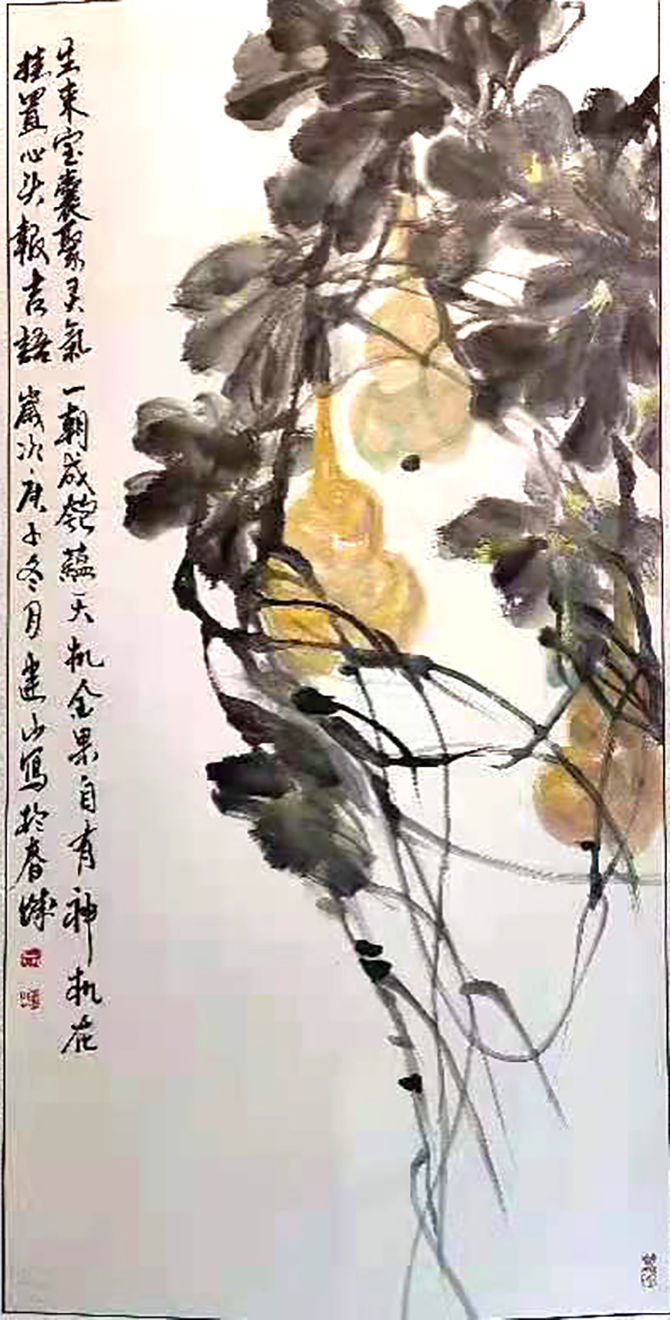 生来宝囊聚灵氣 一朝成熟蕴天机金果自有神机在
挂置心头报吉語 歲次庚子冬月建山寫於春城